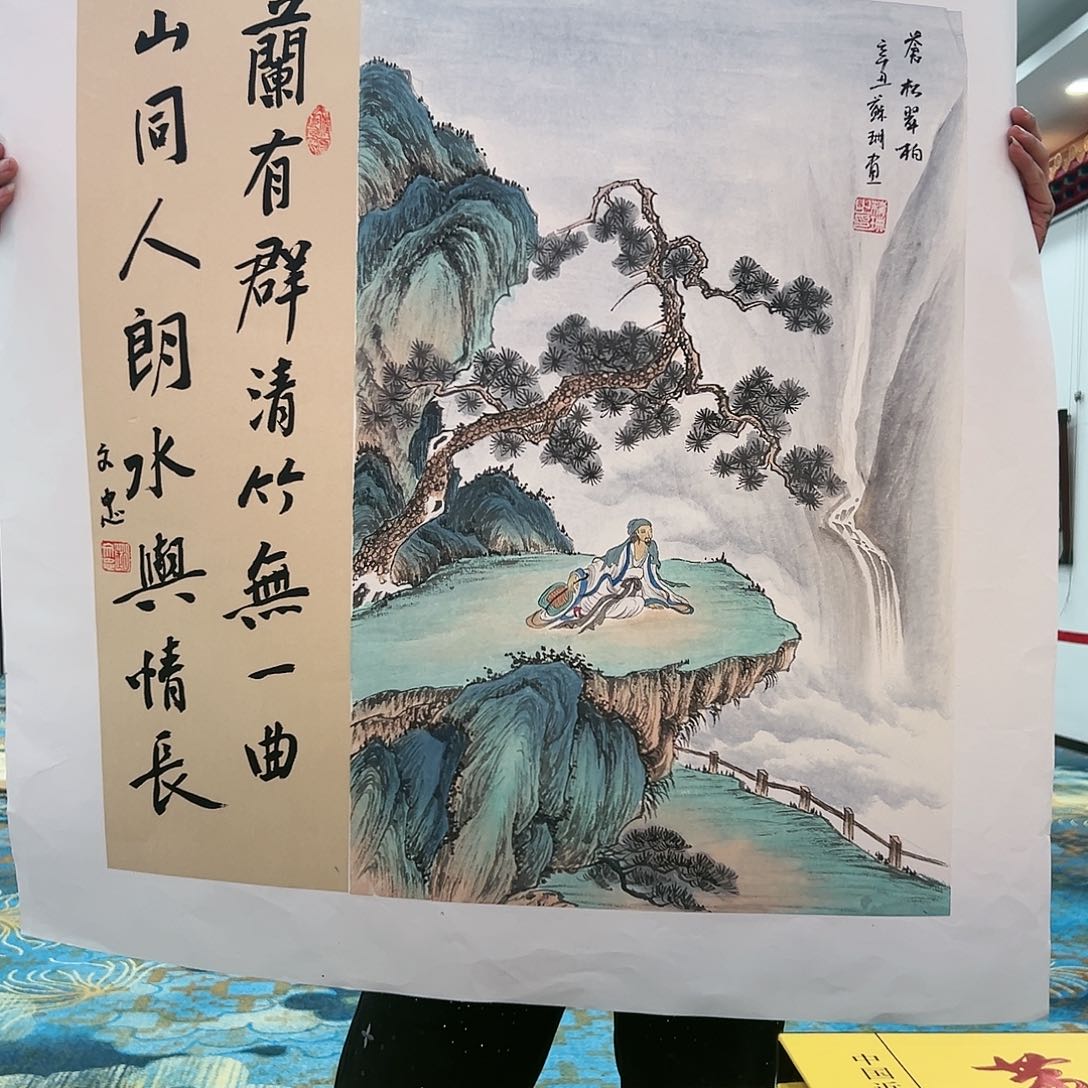 蒼松翠柏
辛丑蘇珊畫
蘭有群清竹無一曲
山同人朗水與情長
文忠
中国